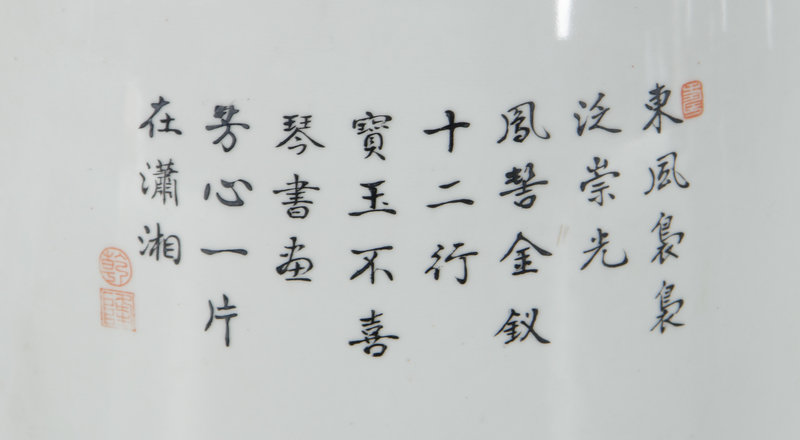 東風裊裊
泛崇光
鳳髻金釵
十二行
寶玉不喜
琴書画
芳心一片
在瀟湘
乾隆